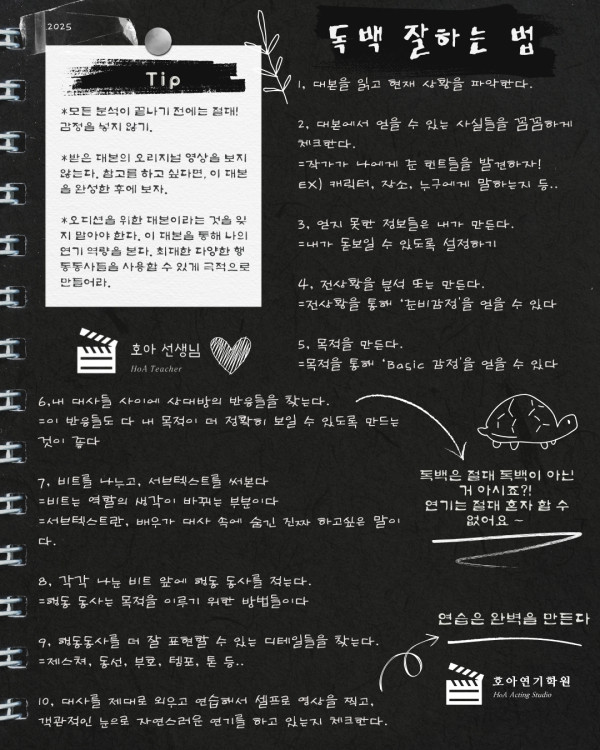 2025
Tip
*모든 분석이 끝나기 전에는 절대!
감정을 넣지 않기.
*받은 대본의 오리지널 영상을 보지
않는다. 참고를 하고 싶다면, 이 대본
을 완성한 후에 보자.
*오디션을 위한 대본이라는 것을 잊
지 말아야 한다. 이 대본을 통해 나의
연기 역량을 본다. 최대한 다양한 행
동동사들을 사용할 수 있게 극적으로
만들어라.
호아 선생님
HoA Teacher
독백 잘하는 법
1, 대본을 읽고 현재 상황을 파악한다.
2, 대본에서 얻을 수 있는 사실들을 꼼꼼하게
체크한다.
=작가가 나에게 준 힌트들을 발견하자!
EX) 캐릭터, 장소, 누구에게 말하는지 등..
3, 얻지 못한 정보들은 내가 만든다.
=내가 돋보일 수 있도록 설정하기
4, 전상황을 분석 또는 만든다.
=전상황을 통해 '준비감정'을 얻을 수 있다
5, 목적을 만든다.
=목적을 통해 'Basic 감정'을 얻을 수 있다
6,내 대사들 사이에 상대방의 반응들을 찾는다.
=이 반응들도 다 내 목적이 더 정확히 보일 수 있도록 만드는
것이 좋다
7, 비트를 나누고, 서브텍스트를 써본다
=비트는 역할의 생각이 바뀌는 부분이다
=서브텍스트란, 배우가 대사 속에 숨긴 진짜 하고싶은 말이
다.
8, 각각 나눈 비트 앞에 행동 동사를 적는다.
=행동 동사는 목적을 이루기 위한 방법들이다
9, 행동동사를 더 잘 표현할 수 있는 디테일들을 찾는다.
=제스쳐, 동선, 부호, 템포, 톤 등..
10, 대사를 제대로 외우고 연습해서 셀프로 영상을 찍고,
객관적인 눈으로 자연스러운 연기를 하고 있는지 체크한다.
독백은 절대 독백이 아닌
거 아시죠?!
연기는 절대 혼자 할 수
없어요 ~
연습은 완벽을 만든다
호아연기학원
HoA Acting Studio